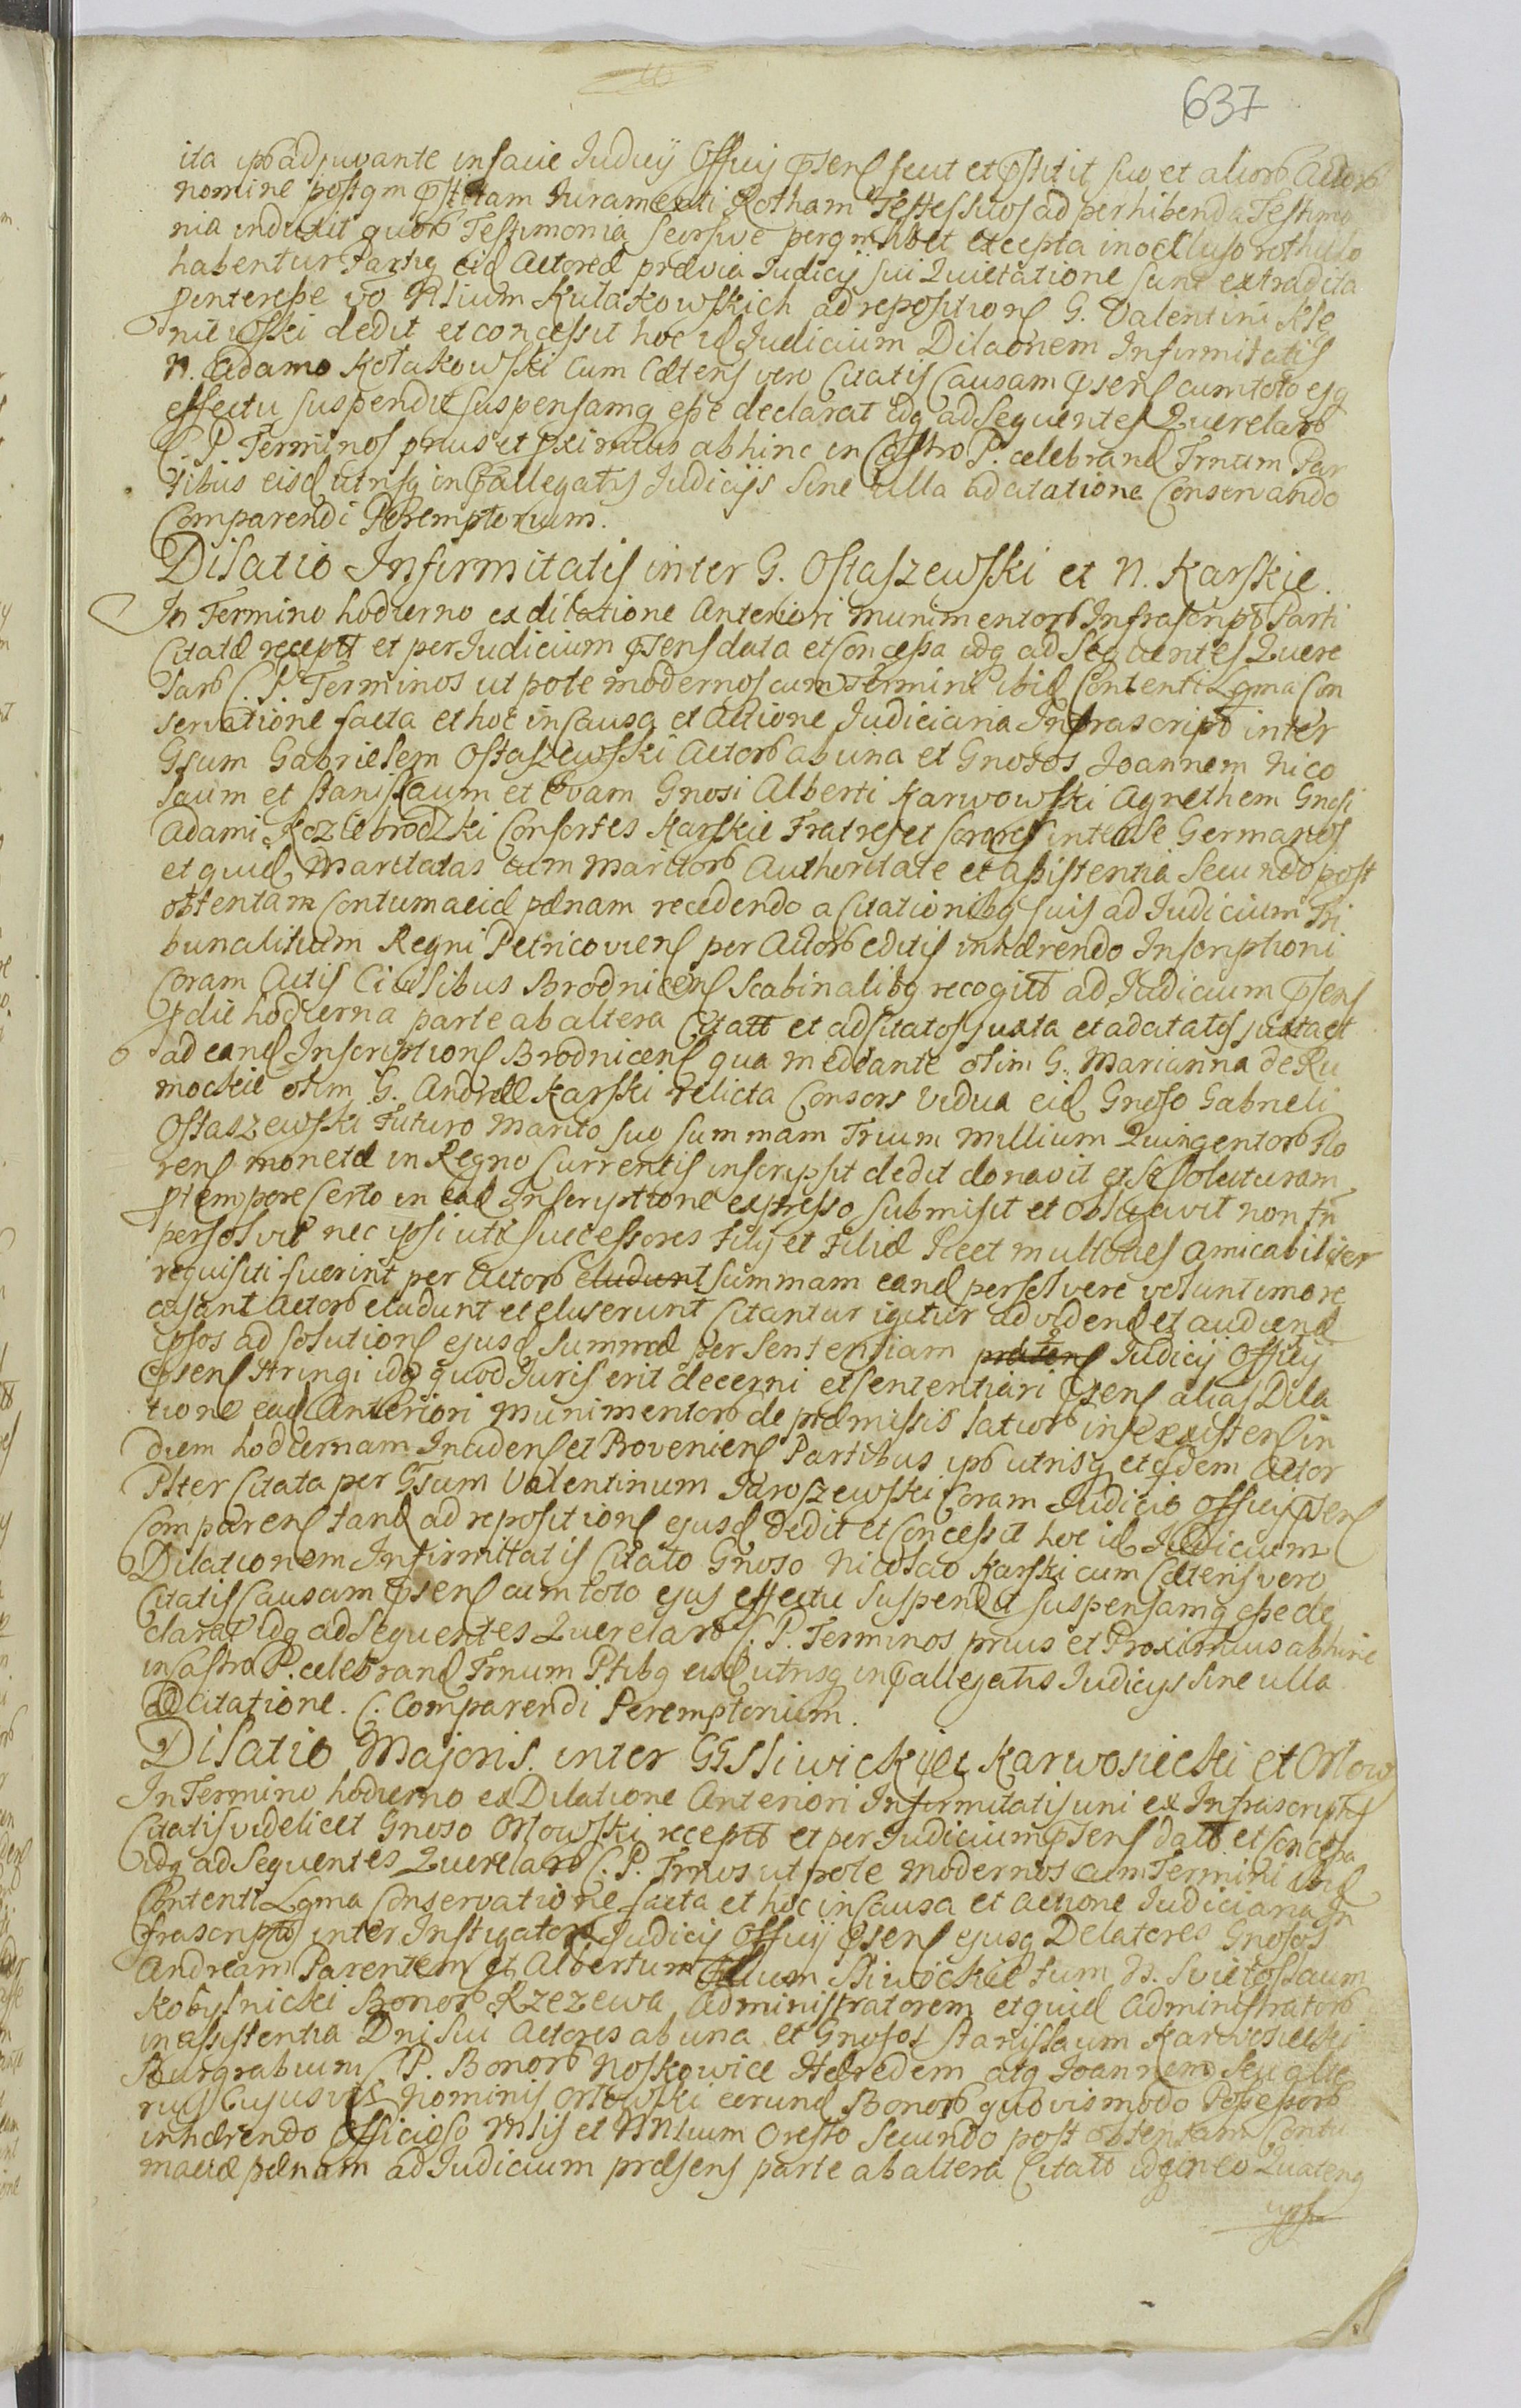 637
ita ipso adjuvante in facie Judicij Officij psens fecit et pstitit suo et alior Actor
nomine postqm pstitam Juramenti Rotham Testes suos ad perhibenda Testimo
nia induxit quor Testimonia seorsive excepta in occluso rothulo
habentur Partiq eid Actorea praevia Judicij sui Quietatione sunt extradita
p interesse vo Kułakowskich ad reposition G. Valentini
dedit et concessit hoc id Judicium Dilaonem Infirmitatis
N. Adamo Kołakowski cum caeteris vero Citatis Causam psens cum toto ejq
effectu suspendit suspensamq esse declarat idq ad Sequentes Querelar
C. P. Terminos prius et pximius abhinc in Castro P. celebrand Trnum Par
tibus eisd utrisq in pallegatis Judicijs Sine ulla adcitatione Conservando
Comparendi Peremptorium.
Dilatio Infirmitatis inter G. Ostaszewski et N. Karskie.
In Termino hodierno ex dilatione Anteriori munimentor Infrascript Parti
Citatae recept et per Judicium psens data et concessa idq ad Sequentes Quere
lar C. P. Terminos ut pote modernos cum Termini ibid Contenti Lgma Con
servatione facta et hoc in Causa et Actione Judiciaria Infrascript inter
Gsum Gabrielem Ostaszewski Actor ab una et Gnosos Joannem Nico
laum et Stanislaum et Evam Gnosi Alberti Karwowski Agnethem Gnosi
Adami Kozlebrodzki Consortes Karskie Fratres et sorores inter se Germanos
et quid Maritatas cum maritor Authoritate et assistentia Secundo post
obtentam Contumaciae paenam recedendo a Citationibq suis ad Judicium Tri
bunalitium Regni Petricoviens per Actor editis inhaerendo Inscriptioni
Coram Actis Civilibus Brodnicens Scabinalibq recognit ad Judicium psens
p die hodierna parte ab altera Citatt et adcitatos juxta et adcitatos juxta et
ad eand Inscription Brodnicens qua mediante olim G. Marianna de Ru
mockie olim G. Andreae Karski relicta Consors Vidua eid Gnoso Gabrieli
Ostaszewski Futuro Marito suo summam Trium Millium Quingentor Flo
rens monetae in Regno Currentis inscripsit dedit donavit et se soluturam
p tempore certo in ead Inscriptione expresso submisit et obligavit non tn
persolvit nec ipsi uti successores Filij et Filiae licet multoties amicabiliter
requisiti fuerint per Actor eludunt summam eand persolvere volunt imo re
cusant Actor eludunt et eluserunt Citantur igitur ad vidend et audiend
ipsos ad solution ejusd summae per sententiam Judicij Officij
psens stringi idq quod Juris erit decerni et sententiari psens alias Dila
tione ead Anteriori munimentor de praemissis latior in se existens in
diem hodiernam Incidens et Proveniens Partibus ipo utrisq et qdem Actor
Plter Citata per Gsum Valentinum Jaroszewski Coram Judicio Officij psens
Comparens tand ad reposition ejusd dedit et concessit hoc id Judicium
Dilationem Infirmitatis Citato Gnoso Nicolao Karski cum Caeteris vero
Citatis Causam psens cum toto ejus effectu suspendit suspensamq esse de
clarat idq ad Sequentes Querelar C. P. Terminos prius et Proximius abhinc
in Castro P. celebrand Trnum Ptibq eisd utrisq in pallegatis Judicijs Sine ulla
Adcitatione. C. Comparendi Peremptorium.
Dilatio Majoris inter GG Sliwickij et Karwosiecki et Orłow
In Termino hodierno ex Dilatione Anteriori Infirmitatis uni ex Infrascriptis
Citatis videlicet Gnoso Orłowski recept et per Judicium psens datt et concessa
idq ad Sequentes Querelar C. P. Trnos ut pote modernos cum Termini ibid
Contenti Lgma Conservatione facta et hoc in Causa et Actione Judiciaria In
frascript inter Instigatorem Judicij Officij psens ejusq Delatores Gnosos
Andream Parentem et Albertum Filium Sliwickie tum N. Swietoslaum
Kobylnicki Bonor Rzezewa Administratorem et quid administrator
in assistentia Dni sui Actores ab una et Gnosos Stanislaum Karwosiecki
Burgrabium C. P. Bonor Noskowice Haeredem atq Joannem seu alte
rius Cujusvis Nominis Orłowski eorund Bonor quovismodo Possessor
inhaerendo Officioso Secundo post obtentam Contu
maciae paenam ad Judicium praesens parte ab altera Citatt id in eo Quatenq
ipsi